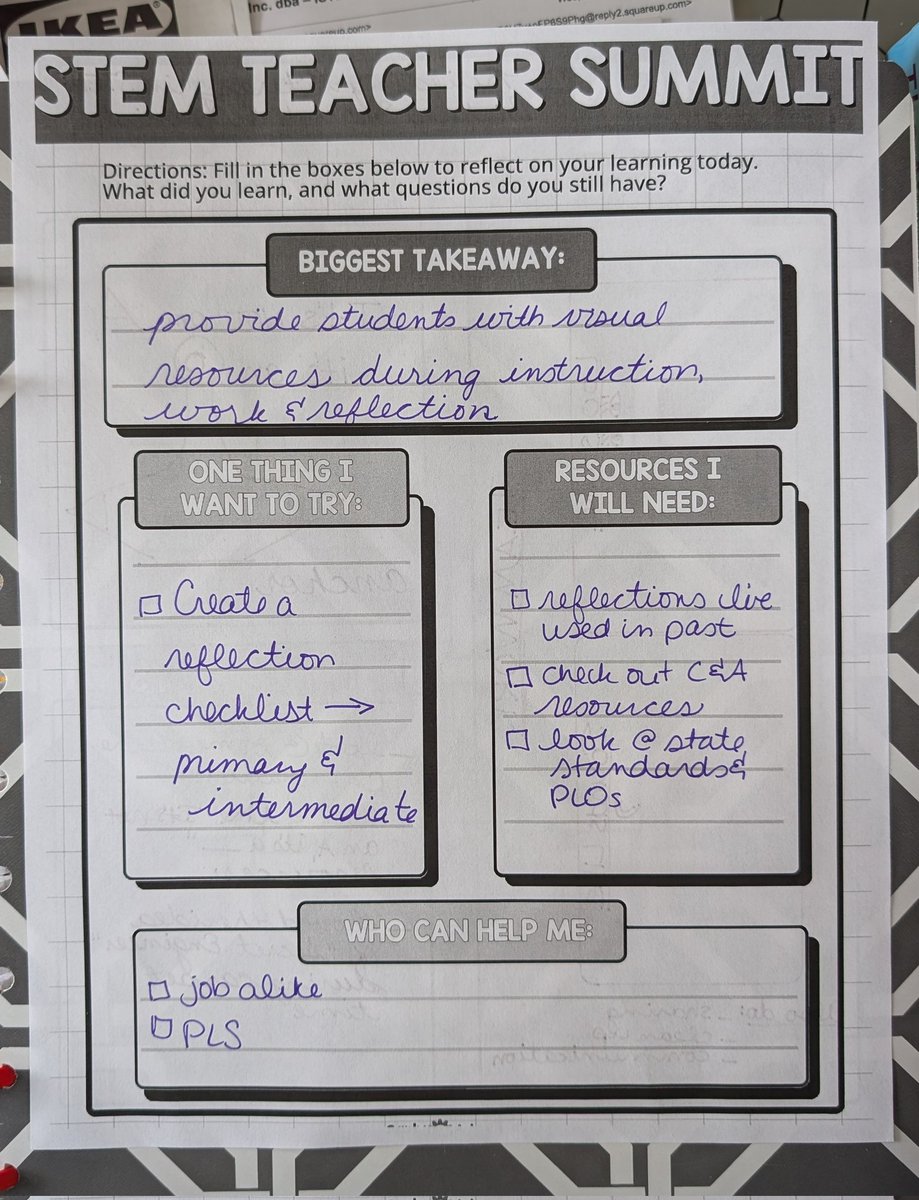 IKEA
Inc. dba
@reply2.squareup.com>
squareup.com>
STEM TEACHER SUMMIT
Directions: Fill in the boxes below to reflect on your learning today.
What did you learn, and what questions do you still have?
BIGGEST TAKEAWAY:
provide students with visual
resources during instruction,
work & reflection
ONE THING I
WANT TO TRY:
☐ Create a
reflection
checklist →
primary &
intermediate
RESOURCES I
WILL NEED:
☐ reflections I've
used in past
☐ check out C&A
resources
☐ look @ state
standards &
PLOs
WHO CAN HELP ME:
☐ job alike
☐ PLS